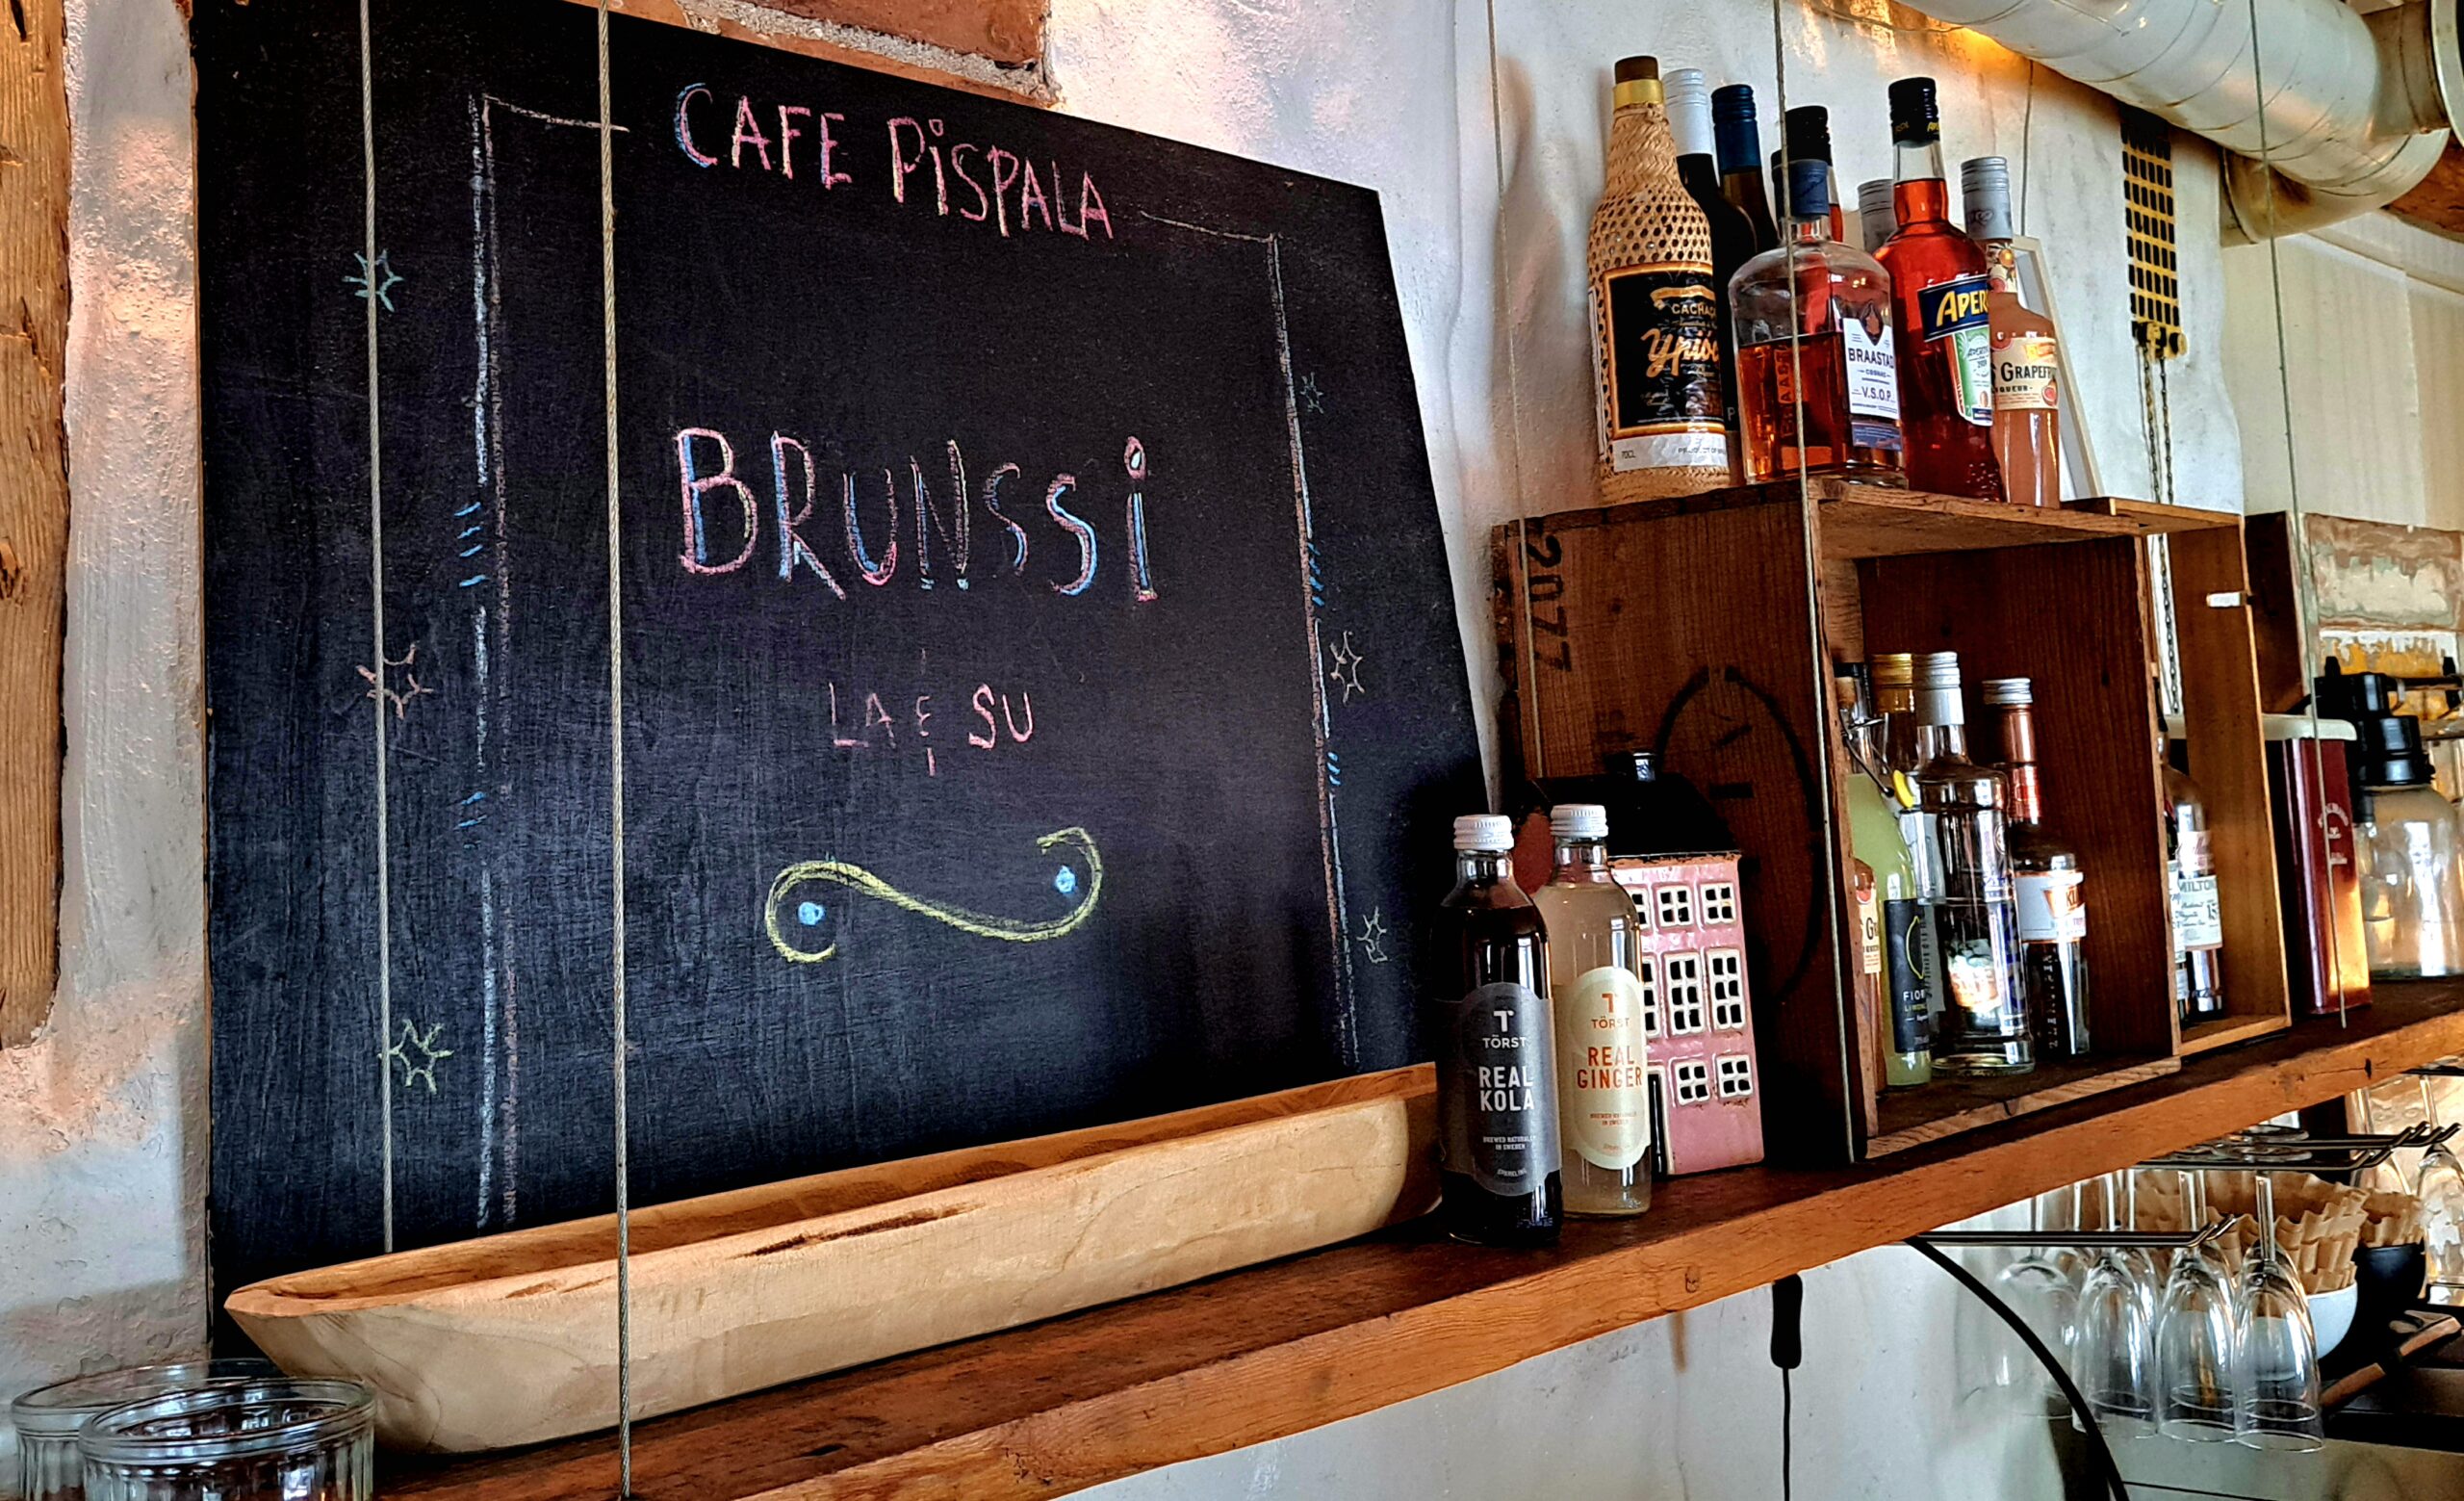 CAFE PISPALA
BRUNSSI
LA & SU
CACHAÇA
Ypióca
70CL
BRAASTAD
COGNAC
V.S.O.P.
APEROL
GRAPEFRUIT
LIQUEUR
2077
T
TÖRST
REAL
KOLA
BREWED NATURALLY
IN SWEDEN
T
TÖRST
REAL
GINGER
BREWED NATURALLY
IN SWEDEN